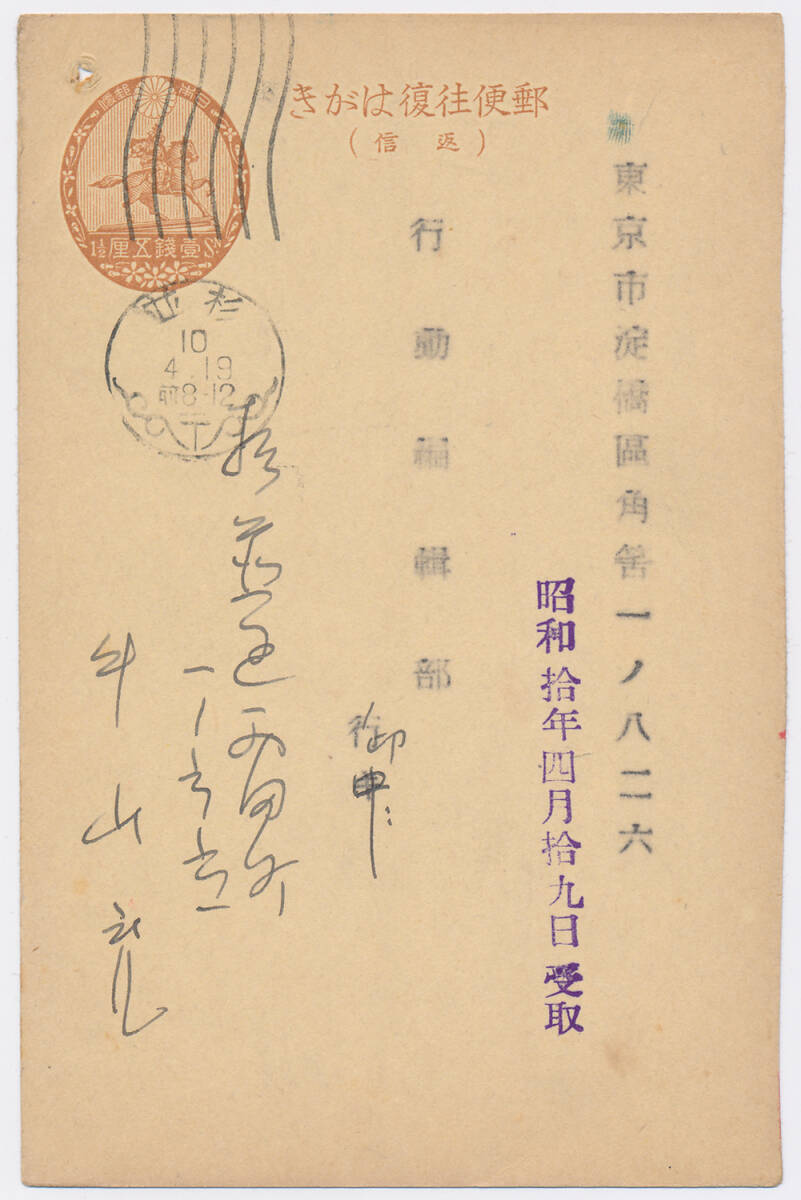 郵便往復はがき
(返信)
日本郵便
壹錢五厘
1½ Sn
杉並
10
4.19
前8-12
東京市淀橋區角筈一ノ八二六
昭和拾年四月拾九日受取
行動編輯部
御中
一ノ
牛山